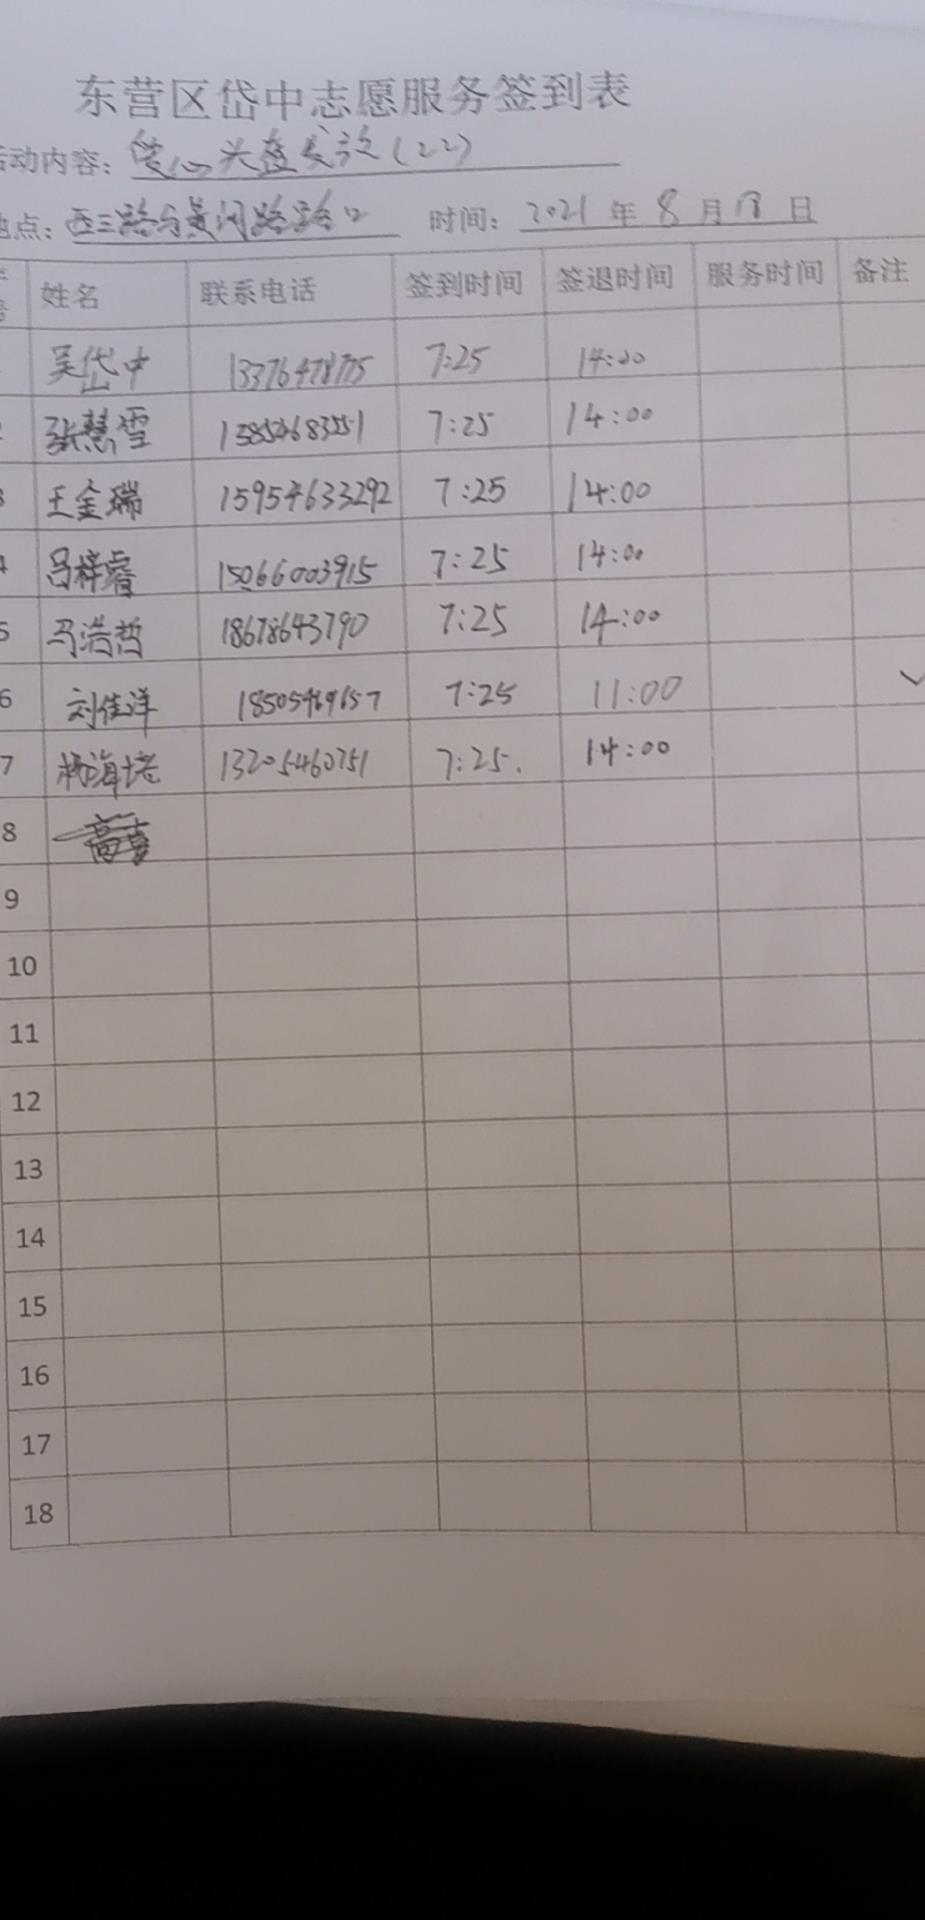 东营区岱中志愿服务签到表
活动内容: 爱心头盔发放(22)
地点: 西三路与黄河路路口 时间: 2021 年 8 月 18 日
姓名 联系电话 签到时间 签退时间 服务时间 备注
吴岱中 7:25 14:00
2 张慧雪 7:25 14:00
3 王金瑞 15954633292 7:25 14:00
4 吕梓睿 15066003915 7:25 14:00
5 马浩哲 18678643790 7:25 14:00
6 刘佳洋 18505469657 7:25 11:00 ✓
7 13205460751 7:25. 14:00
8
9
10
11
12
13
14
15
16
17
18